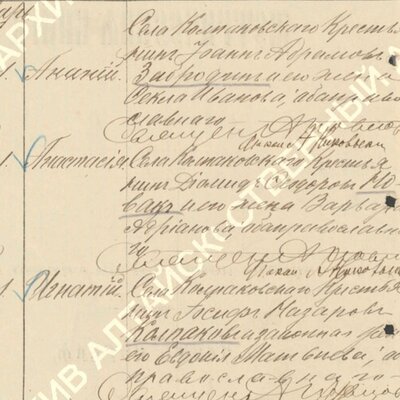 Села Колпаковскаго Кресть
янинъ Іоаннъ Абрамовъ
Ананій. Забродинъ и его жена
Ѳекла Иванова, оба право
славнаго
Священ
Анастасія. Села Колпаковскаго Крестья
нинъ Діомидъ Ѳедоровъ Но
вакъ и его жена Варвара
Адріанова оба православна
го
Священ
Игнатій. Села Колпаковскаго Крестья
нинъ Іосифъ Назаровъ
Колпаковъ и законная жена
его Евдокія Матвѣева, оба
православнаго.
Священ
АРХИВ
АРХИВ АЛТАЙСК
СТВЕННЫЙ